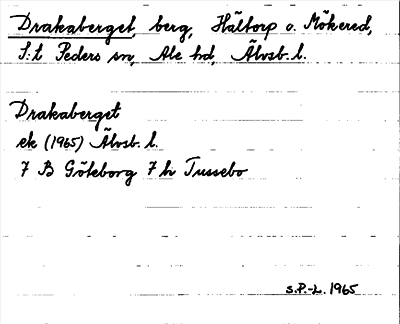 Drakaberget, berg, Hältorp o. Mökered,
S:t Peders sn, Ale hd, Älvsb. l.
Drakaberget
ek (1965) Älvsb. l.
7 B Göteborg 7 h Tussebo
S.P.-L. 1965